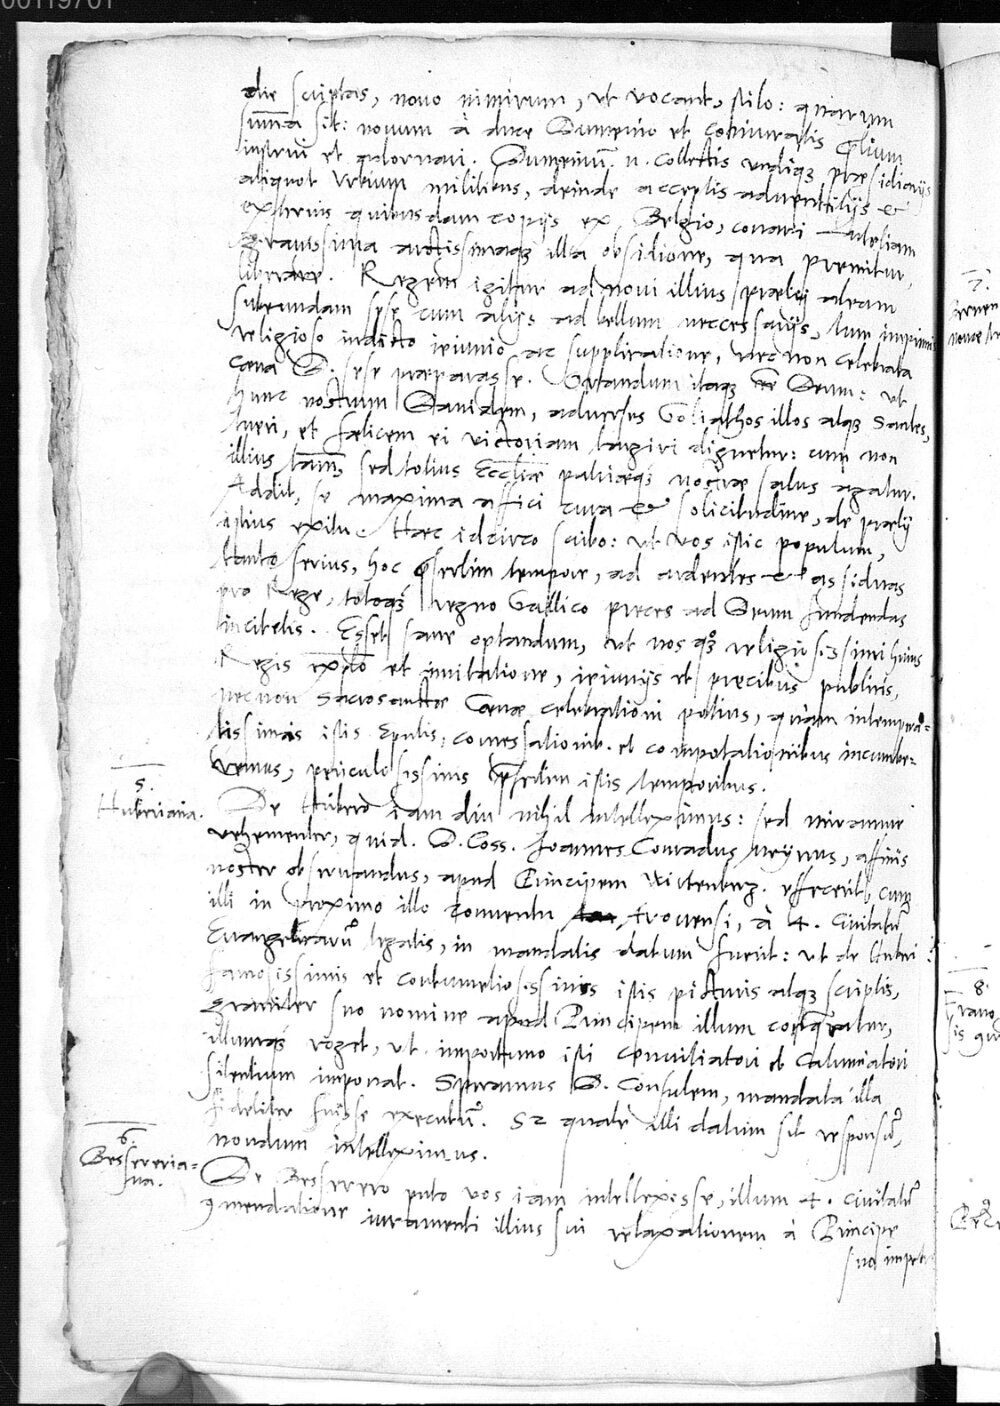 00119701
die scriptas, nouo nimirum, vt vocant, stilo: quarum
summa sit: nouum à duce Dumenio et coniuratis prælium
instrui et adornari. Dumenium. n. collectis vndiq3 præsidiarijs
aliquot vrbium militibus, deinde acceptis aduentitijs et
externis quibusdam copijs ex Belgio, conari Lutetiam
grauissima arctissimaq3 illa obsidione, qua premitur,
liberare. Regem igitur ad noui illius prælij aleam
subeundam sese cum alijs ad bellum necessarijs, tum imprimis
religioso indicto ieiunio ac supplicatione, nec non celebrata
cæna D. sese præparasse. Orandum itaq3 ee Deum: vt
hunc nostrum Dauidem, aduersus Goliathos illos atq3 Saules,
tueri, et fælicem ei victoriam largiri dignetur: cum non
illius tam, sed totius Eccliæ patriæq3 nostræ salus agatur.
Addit, se maxima affici cura et solicitudine, de prælij
istius exitu. Hæc idcirco scribo: vt vos istic populum,
tanto serius, hoc præsertim tempore, ad ardentes et assiduas
pro Rege, totoq3 regno Gallico preces ad Deum fundendas
incitetis. Esset sane optandum, vt nos q3 religiosissimi huius
Regis exemplo et imitatione, ieiunijs et precibus publicis,
nec non sacrosanctæ Cænæ celebrationi potius, quàm intempera=
tissimis istis epulis, comessationib. et compotationibus incumbe=
remus, periculosissimis præsertim istis temporibus.
5.
Huberiana.
De Hubero iam diu nihil intelleximus: sed miramur
vehementer, quid. D. Coss. Joannes Conradus Meyerus, affinis
noster obseruandus, apud Principem Wirtenberg. effecerit, cum
illi in proximo illo conuentu trouensi, à 4. Ciuitatum
Euangelicarum legatis, in mandatis datum fuerit: vt de Huberi
famosissimis et contumeliosissimis istis picturis atq3 scriptis,
grauiter suo nomine apud Principem illum conqueratur,
illumq3 roget, vt importuno isti conuiciatori et Calumniatori
silentium imponat. Speramus D. Consulem, mandata illa
fideliter fuisse executum. Sz quale illi datum sit responsum,
nondum intelleximus.
6.
Bessereria=
na.
De Besserero puto vos iam intellexisse, illum 4. ciuitatum
9mendatione iuramenti illius sui relaxationem à Principe
suo impetr
7.
8.